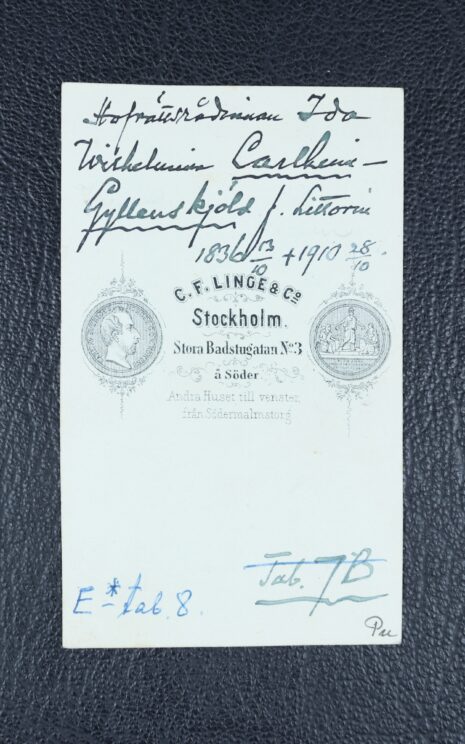 Hofrättsrådinnan Ida
Wilhelmina Carlheim-
Gyllenskjöld f. Littorin
1836 13/10 + 1910 28/10.
C. F. LINGE & Co
Stockholm.
Stora Badstugatan No 3
å Söder
Andra Huset till venster,
från Södermalmstorg
Tab. 7B
E* tab. 8.